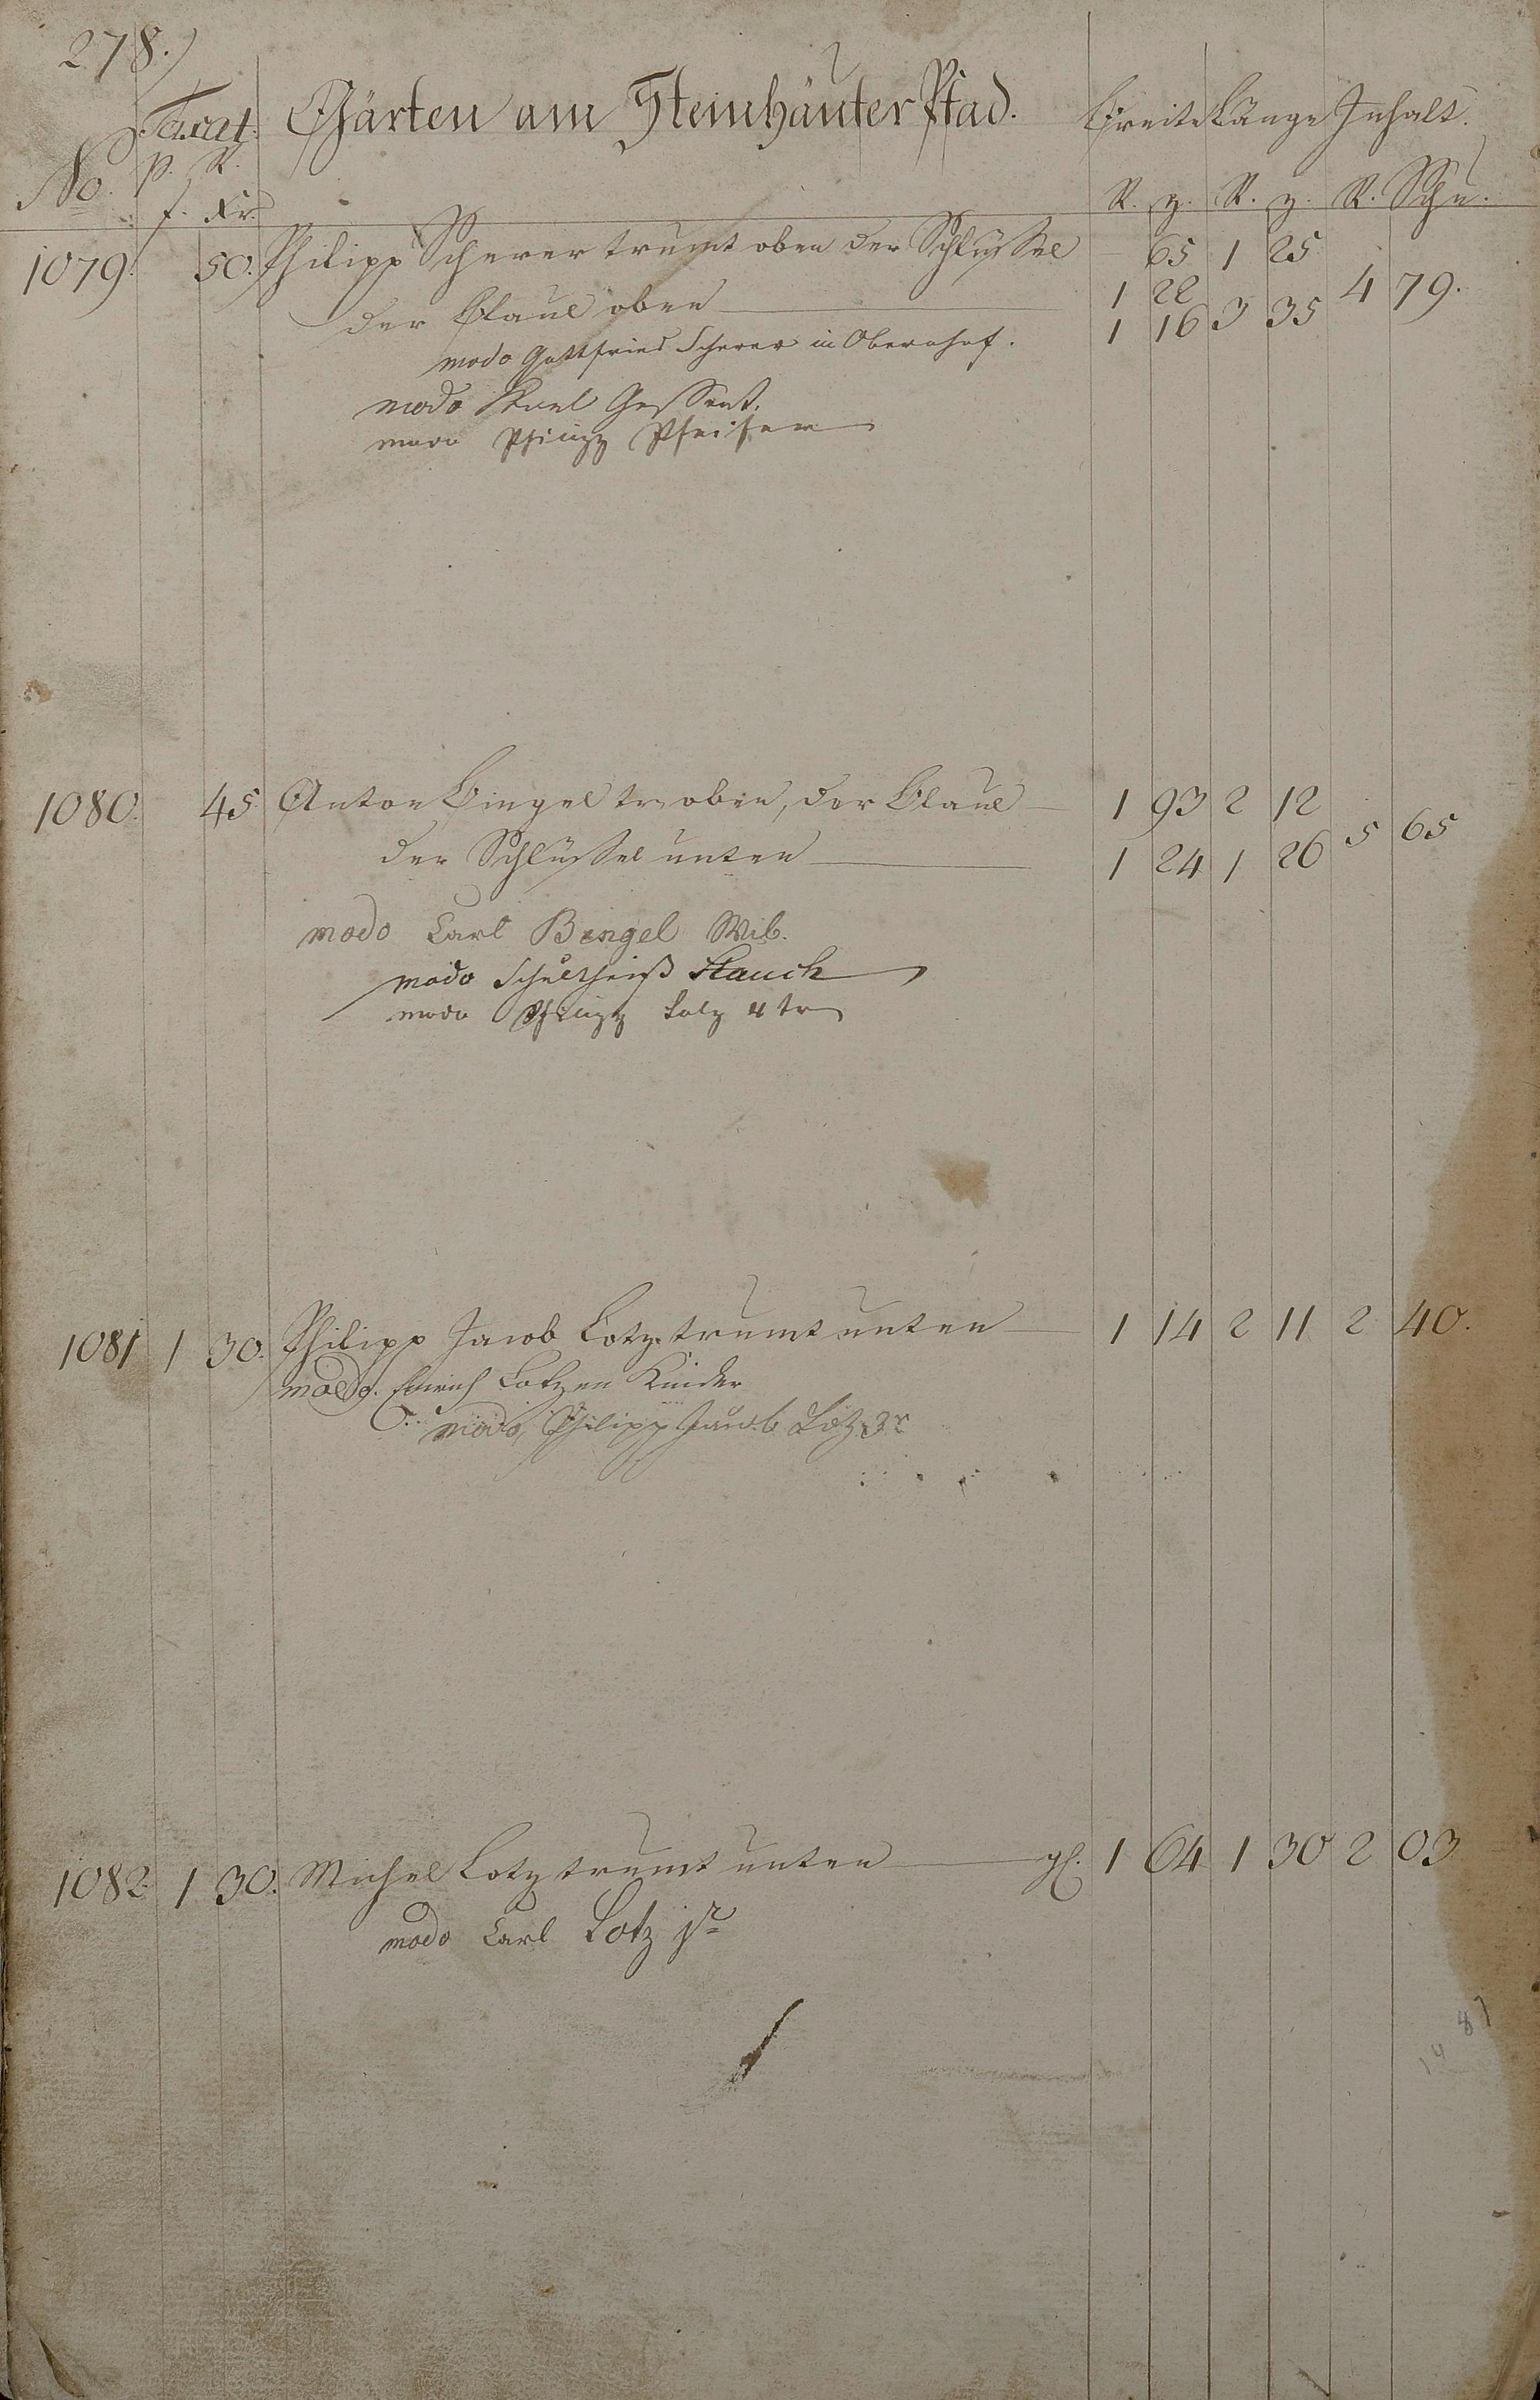 278.
Taxat. Gärten am Steinhäuter Pfad. Breite Länge Inhalt.
No. p. R.
f. Xr. R. z. R. z. R. Schu.
1079. 50. Philipp Scherer trumt oben der Schlüssel 65 1 25
1 22 4 79.
der Blaul oben 1 16 3 35
modo Gottfried Scherer in Obernhof.
modo Karl
modo Philipp Pfeifer
1080. 45 Anton Bingel tr. oben, der Blaul 1 93 2 12
5 65
der Schlüssel unten 1 24 1 26
modo Carl Bingel Wib.
modo Schultheiß Stauch
modo Philipp Lotz 4tr
1081 1 30. Philipp Jacob Lotz trumt unten 1 14 2 11 2 40.
modo. Henrich Lotzen Kinder
modo Philipp Jacob Lotz 3r
1082. 1 30. Michel Lotz trumt unten gl. 1 64 1 30 2 03
modo Carl Lotz jr